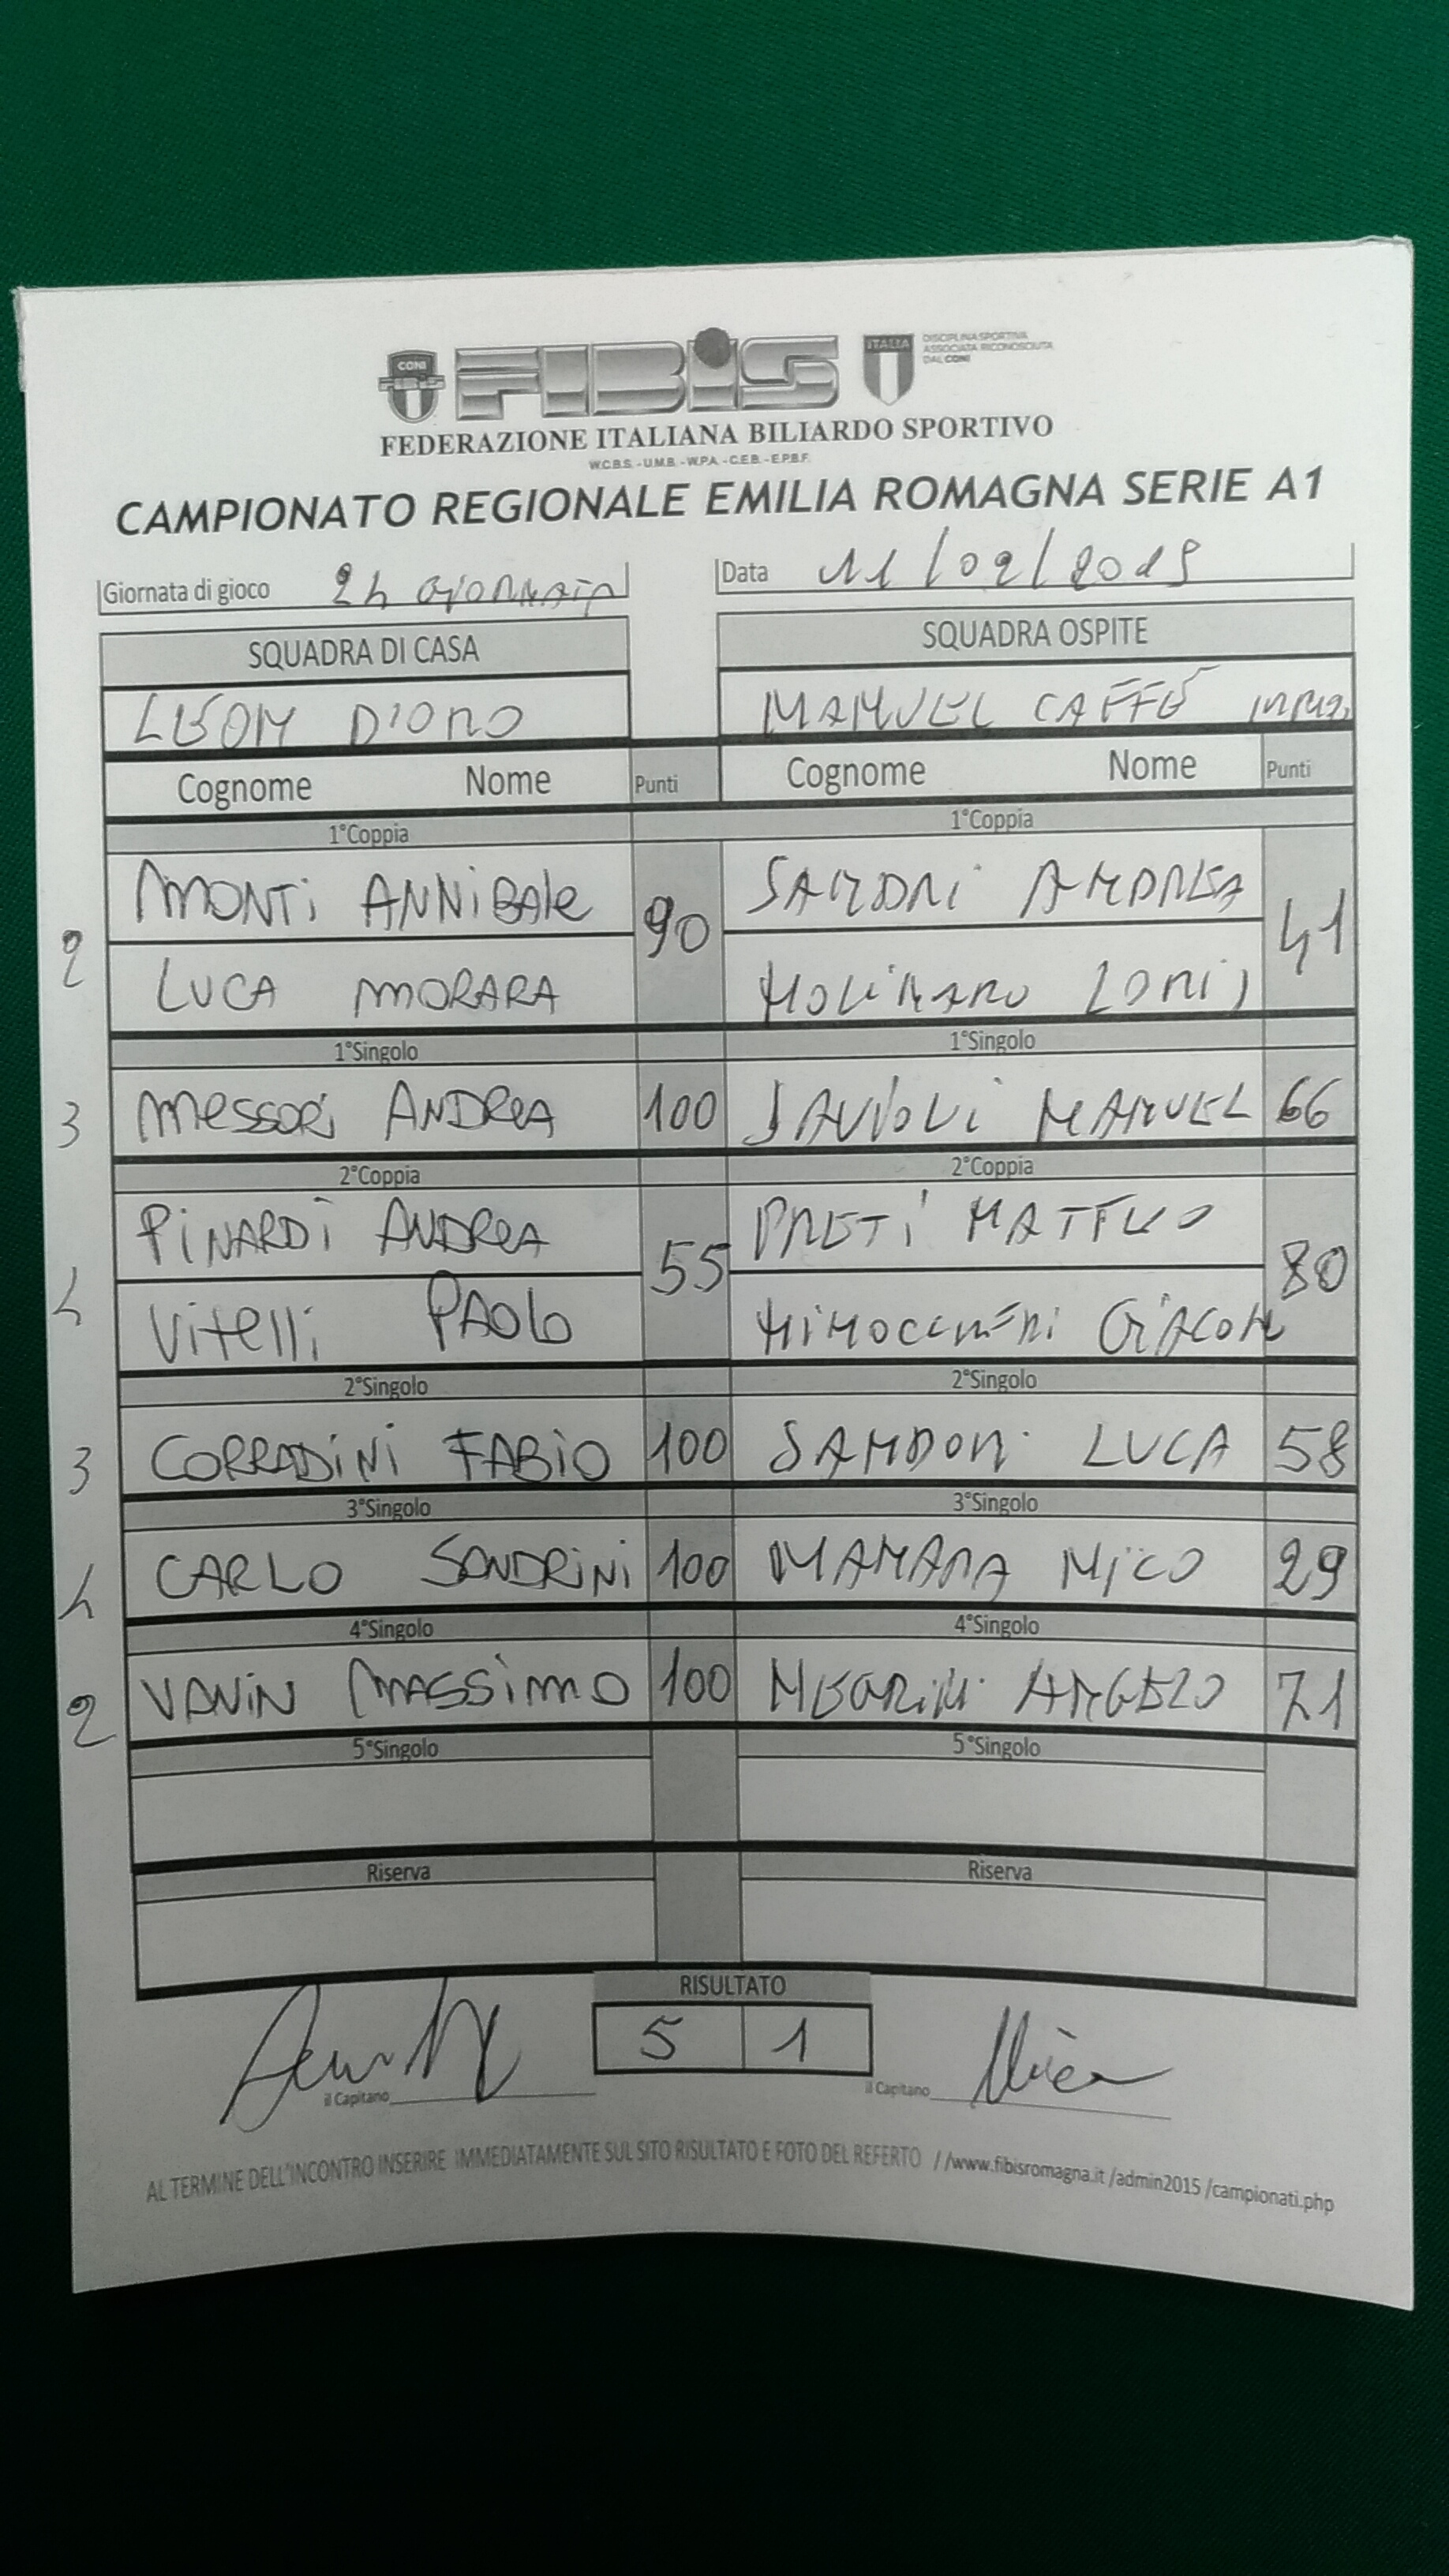 CONI
FIBIS
FIBIS
ITALIA
DISCIPLINA SPORTIVA
ASSOCIATA RICONOSCIUTA
DAL CONI
FEDERAZIONE ITALIANA BILIARDO SPORTIVO
W.C.B.S. - U.M.B. - W.P.A. - C.E.B. - E.P.B.F.
CAMPIONATO REGIONALE EMILIA ROMAGNA SERIE A1
Giornata di gioco 24 GIORNATA Data 11/02/2019
SQUADRA DI CASA SQUADRA OSPITE
LEON D'ORO MANUEL CAFFÈ
Cognome Nome Punti Cognome Nome Punti
1°Coppia 1°Coppia
MONTI ANNIBALE 90 SANDRI ANDREA 41
LUCA MORARA MOLINARO LORIS
1°Singolo 1°Singolo
3 MESSORI ANDREA 100 SAVIOLI MANUEL 66
2°Coppia 2°Coppia
PINARDI ANDREA 55 PRETI MATTEO 80
VITELLI PAOLO
2°Singolo 2°Singolo
3 CORRADINI FABIO 100 LUCA 58
3°Singolo 3°Singolo
CARLO SONDRINI 100 MICO 29
4°Singolo 4°Singolo
2 VANIN MASSIMO 100 NEGRINI ANGELO 71
5°Singolo 5°Singolo
Riserva Riserva
RISULTATO
5 1
il Capitano il Capitano
AL TERMINE DELL'INCONTRO INSERIRE IMMEDIATAMENTE SUL SITO RISULTATO E FOTO DEL REFERTO //www.fibisromagna.it /admin2015 /campionati.php